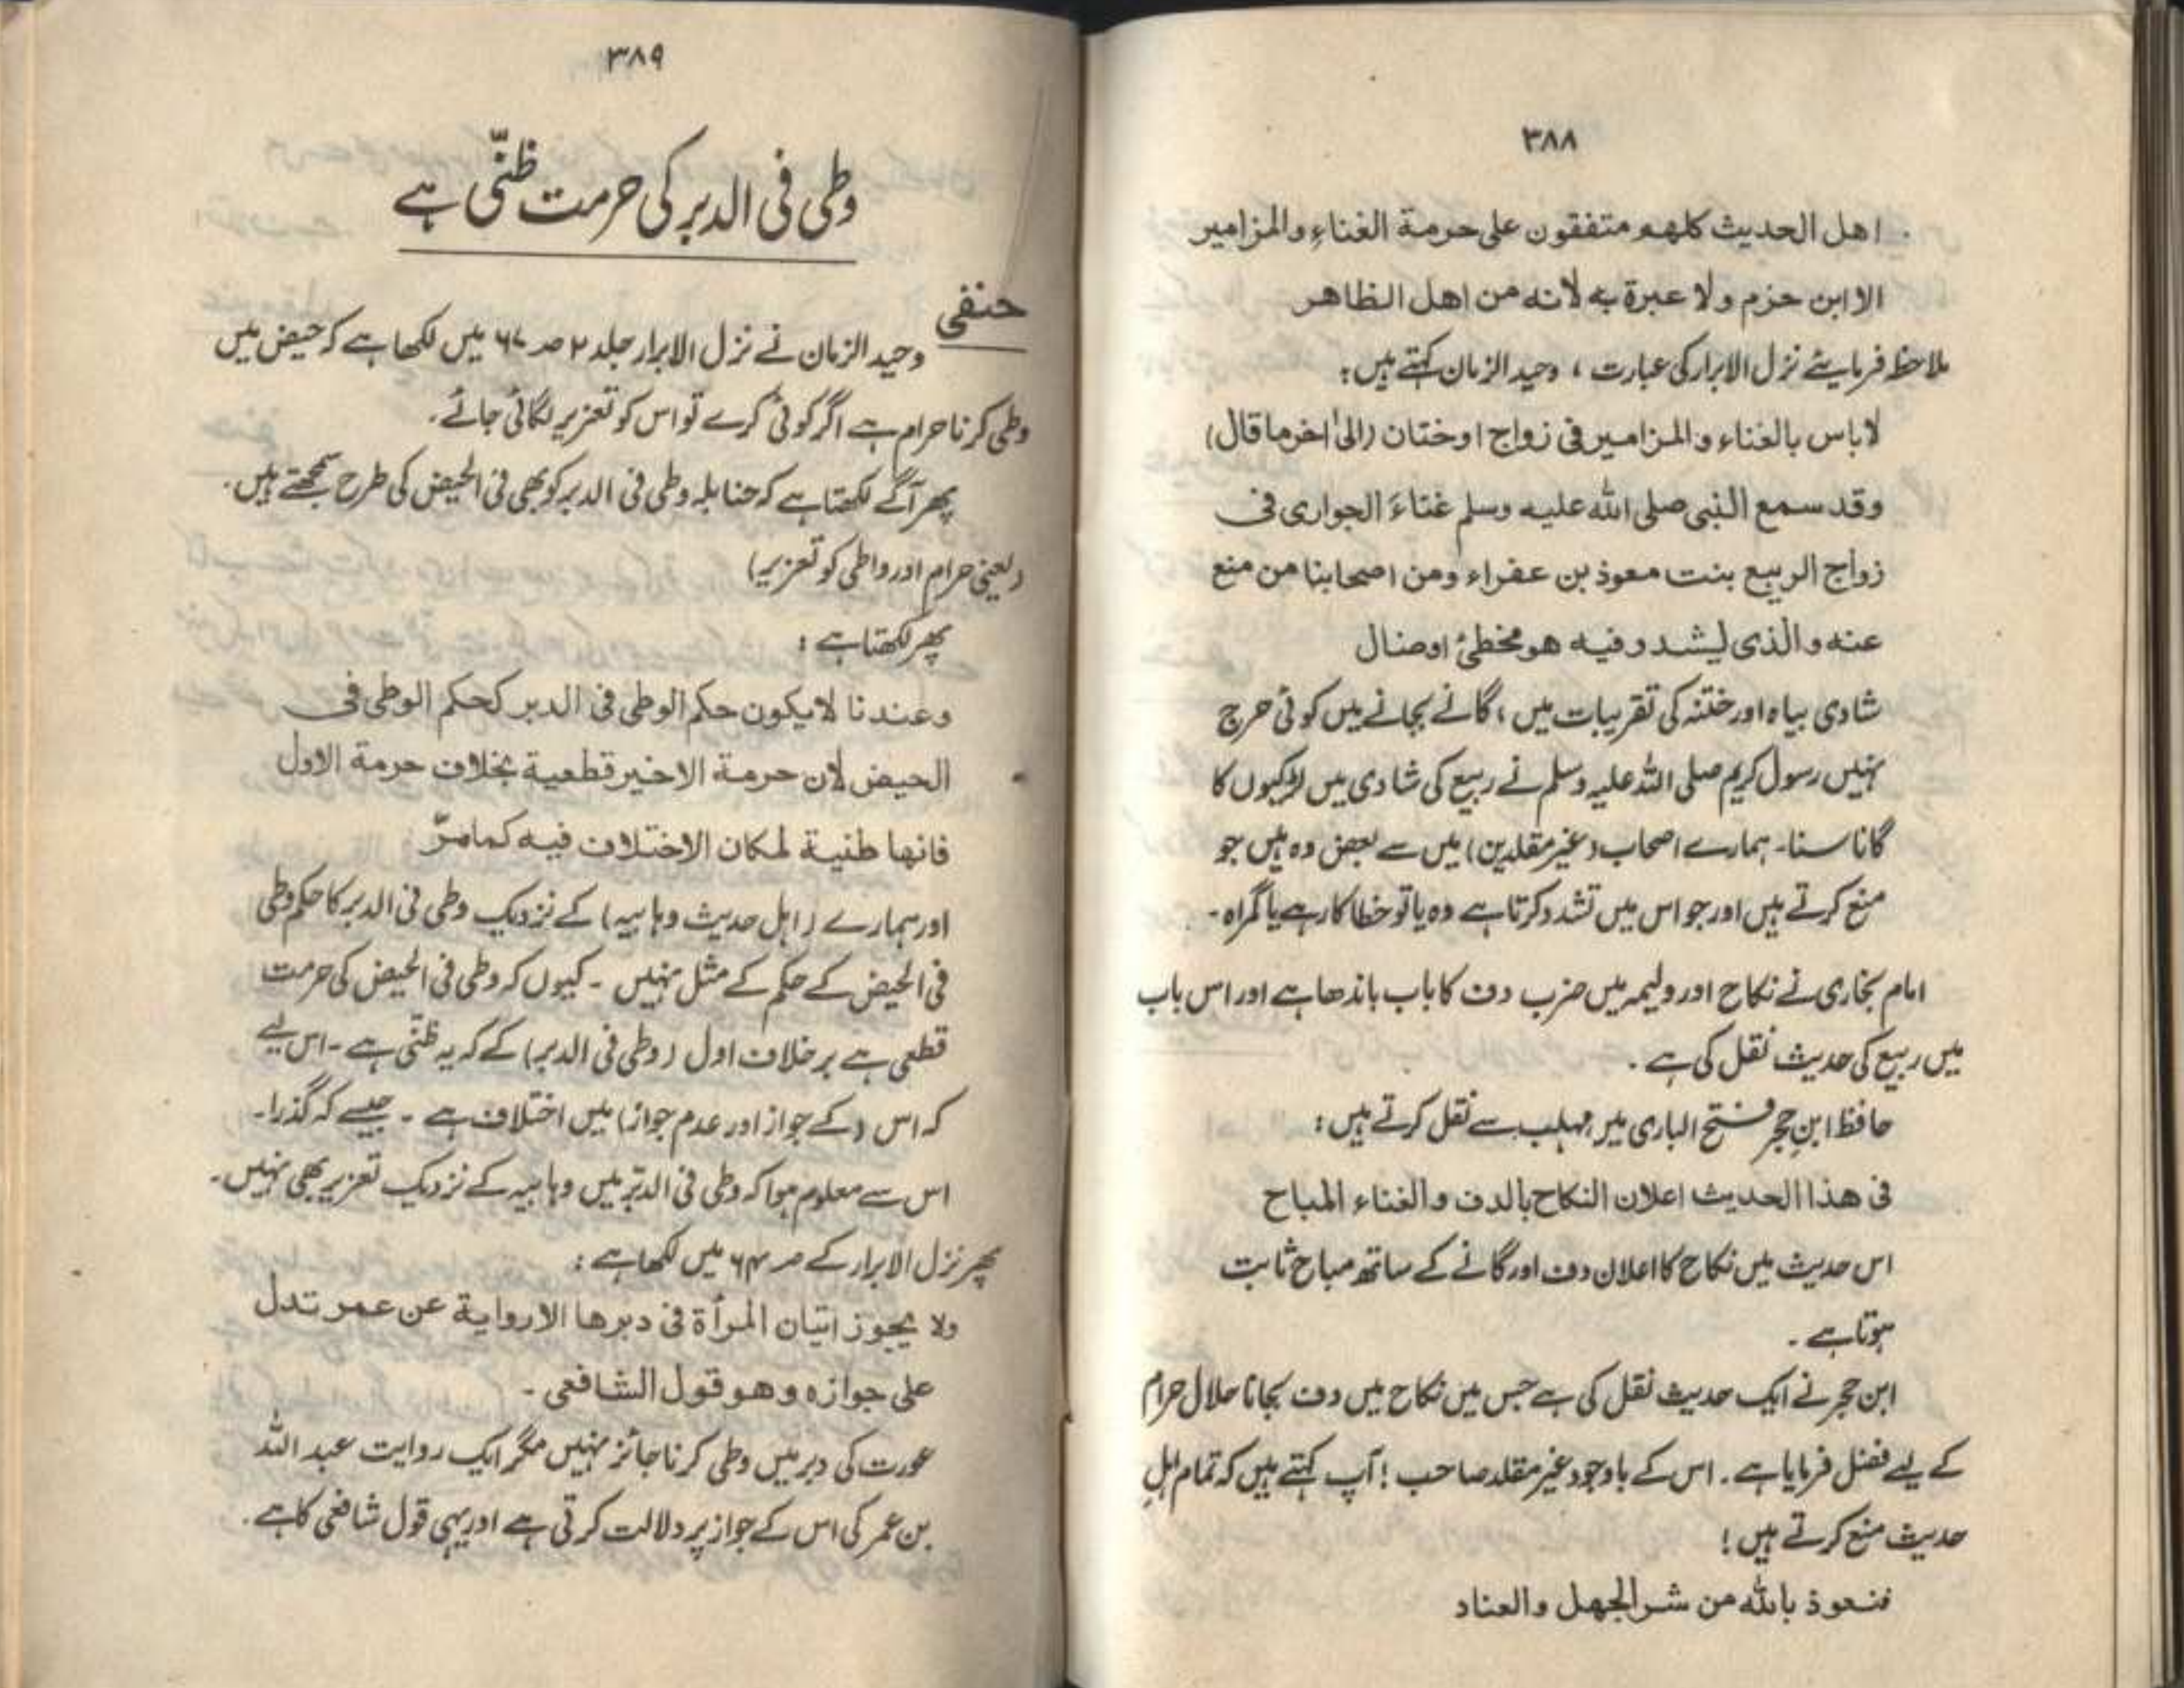 ۳۸۸
اهل الحدیث کلهم متفقون علی حرمة الغناء والمزامیر
الا ابن حزم ولا عبرة به لانه من اهل الظاهر
ملاحظ فرمایئے نزل الابرار کی عبارت ، وحید الزمان کہتے ہیں :
لاباس بالغناء والمزامیر فی زواج اوختان (الیٰ اخر ما قال)
وقد سمع النبی صلی اللہ علیہ وسلم غناءَ الجواری فی
زواج الربیع بنت معوذ بن عفراء ومن اصحابنا من منع
عنه والذی لیشدد فیه هو مخطئ اوضال
شادی بیاہ اور ختنہ کی تقریبات میں ، گانے بجانے میں کوئی حرج
نہیں رسول کریم صلی اللہ علیہ وسلم نے ربیع کی شادی میں لڑکیوں کا
گانا سنا۔ ہمارے اصحاب (غیر مقلدین) میں سے بعض وہ ہیں جو
منع کرتے ہیں اور جو اس میں تشدد کرتا ہے وہ یا تو خطا کار ہے یا گمراہ ۔
امام بخاری نے نکاح اور ولیمہ میں ضرب دف کا باب باندھا ہے اور اس باب
میں ربیع کی حدیث نقل کی ہے ۔
حافظ ابنِ حجر فتح الباری میں مہلب سے نقل کرتے ہیں :
فی هذا الحدیث اعلان النکاح بالدف والغناء المباح
اس حدیث میں نکاح کا اعلان دف اور گانے کے ساتھ مباح ثابت
ہوتا ہے ۔
ابن حجر نے ایک حدیث نقل کی ہے جس میں نکاح میں دف بجانا حلال حرام
کے لیے فضل فرمایا ہے ۔ اس کے باوجود غیر مقلد صاحب ! آپ کہتے ہیں کہ تمام اہلِ
حدیث منع کرتے ہیں !
فنعوذ باللہ من شر الجهل والعناد
۳۸۹
وطی فی الدبر کی حرمت ظنّی ہے
حنفی
وحید الزمان نے نزل الابرار جلد ۲ صہ ۶۷ میں لکھا ہے کہ حیض میں
وطی کرنا حرام ہے اگر کوئی کرے تو اس کو تعزیر لگائی جائے ۔
پھر آگے لکھتا ہے کہ حنابلہ وطی فی الدبر کو بھی فی الحیض کی طرح سمجھتے ہیں ۔
(یعنی حرام اور واطی کو تعزیر)
پھر لکھتا ہے :
وعندنا لایکون حکم الوطی فی الدبر کحکم الوطی فی
الحیض لان حرمة الاخیر قطعیة بخلاف حرمة الاول
فانها طنیة لمکان الاختلاف فیه کمامرّ
اور ہمارے (اہل حدیث وہابیہ) کے نزدیک وطی فی الدبر کا حکم وطی
فی الحیض کے حکم کے مثل نہیں ۔ کیوں کہ وطی فی الحیض کی حرمت
قطعی ہے برخلاف اول (وطی فی الدبر) کے کہ یہ ظنّی ہے ۔ اس لیے
کہ اس (کے جواز اور عدم جواز) میں اختلاف ہے ۔ جیسے کہ گذرا۔
اس سے معلوم ہوا کہ وطی فی الدبر میں وہابیہ کے نزدیک تعزیر بھی نہیں ۔
پھر نزل الابرار کے صہ ۶۴ میں لکھا ہے :
ولا یجوز اتیان المرأة فی دبرها الا روایة عن عمر تدل
علی جوازه وهو قول الشافعی ۔
عورت کی دبر میں وطی کرنا جائز نہیں مگر ایک روایت عبد اللہ
بن عمر کی اس کے جواز پر دلالت کرتی ہے اور یہی قول شافعی کا ہے ۔